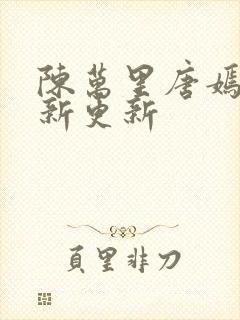 陳萬里唐嫣
新更新
頁里非刀